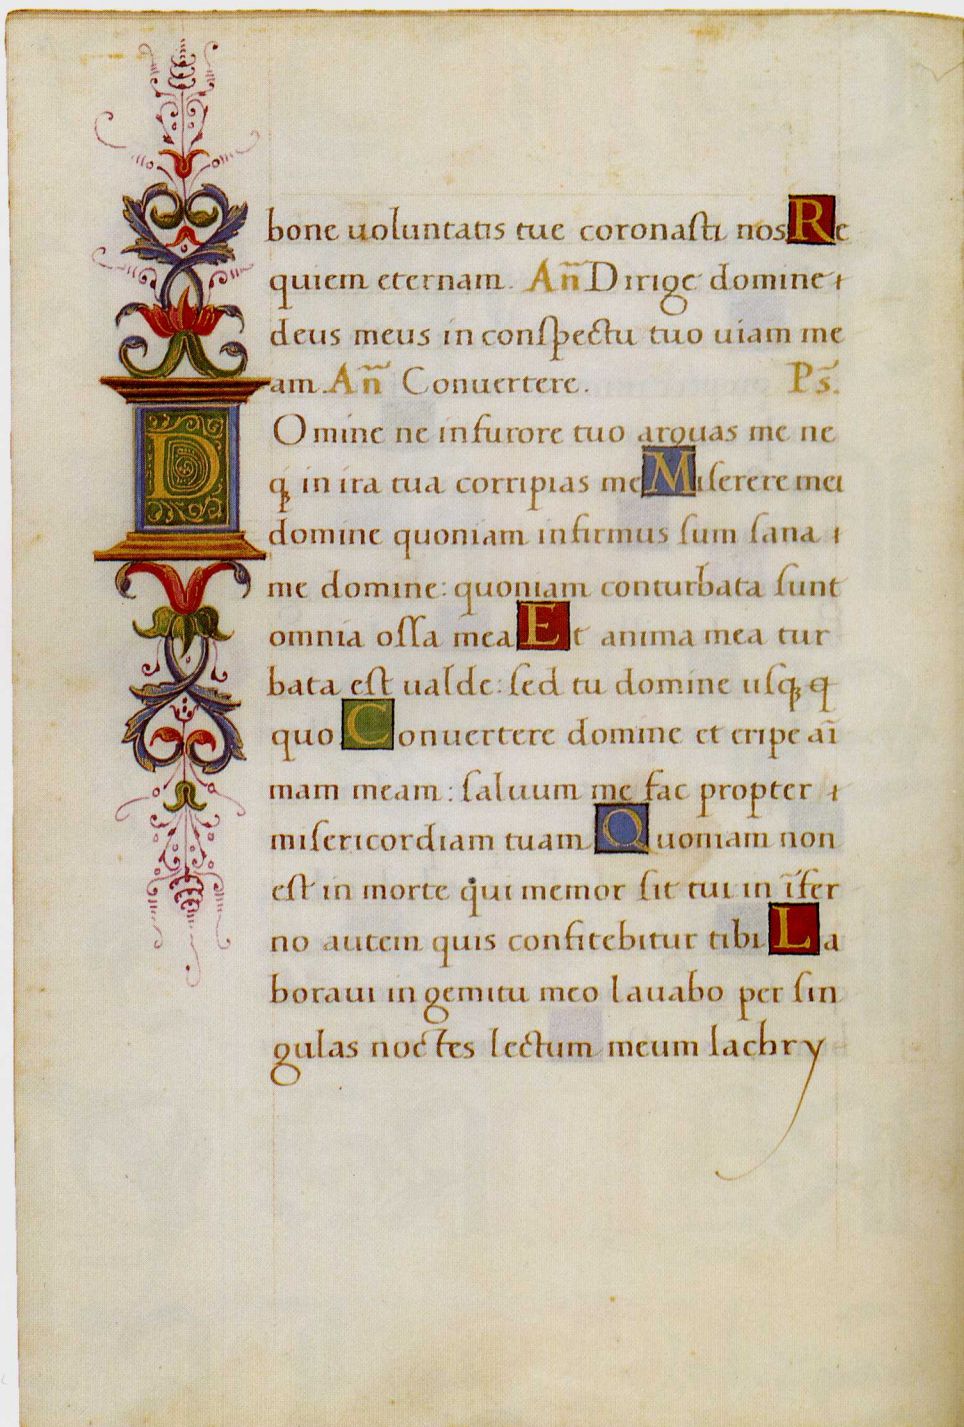 bone uoluntatis tue coronasti nos Re
quiem eternam. Añ Dirige domine
deus meus in conspectu tuo uiam me
am. Añ Conuertere. Ps.
Domine ne in furore tuo arguas me ne
q̨ in ira tua corripias me Miserere mei
domine quoniam infirmus sum sana
me domine: quoniam conturbata sunt
omnia ossa mea Et anima mea tur
bata est ualde: sed tu domine usq̨ q
quo Conuertere domine et eripe aī
mam meam: saluum me fac propter
misericordiam tuam Quoniam non
est in morte qui memor sit tui in īfer
no autem quis confitebitur tibi La
boraui in gemitu meo lauabo per sin
gulas noctes lectum meum lachry